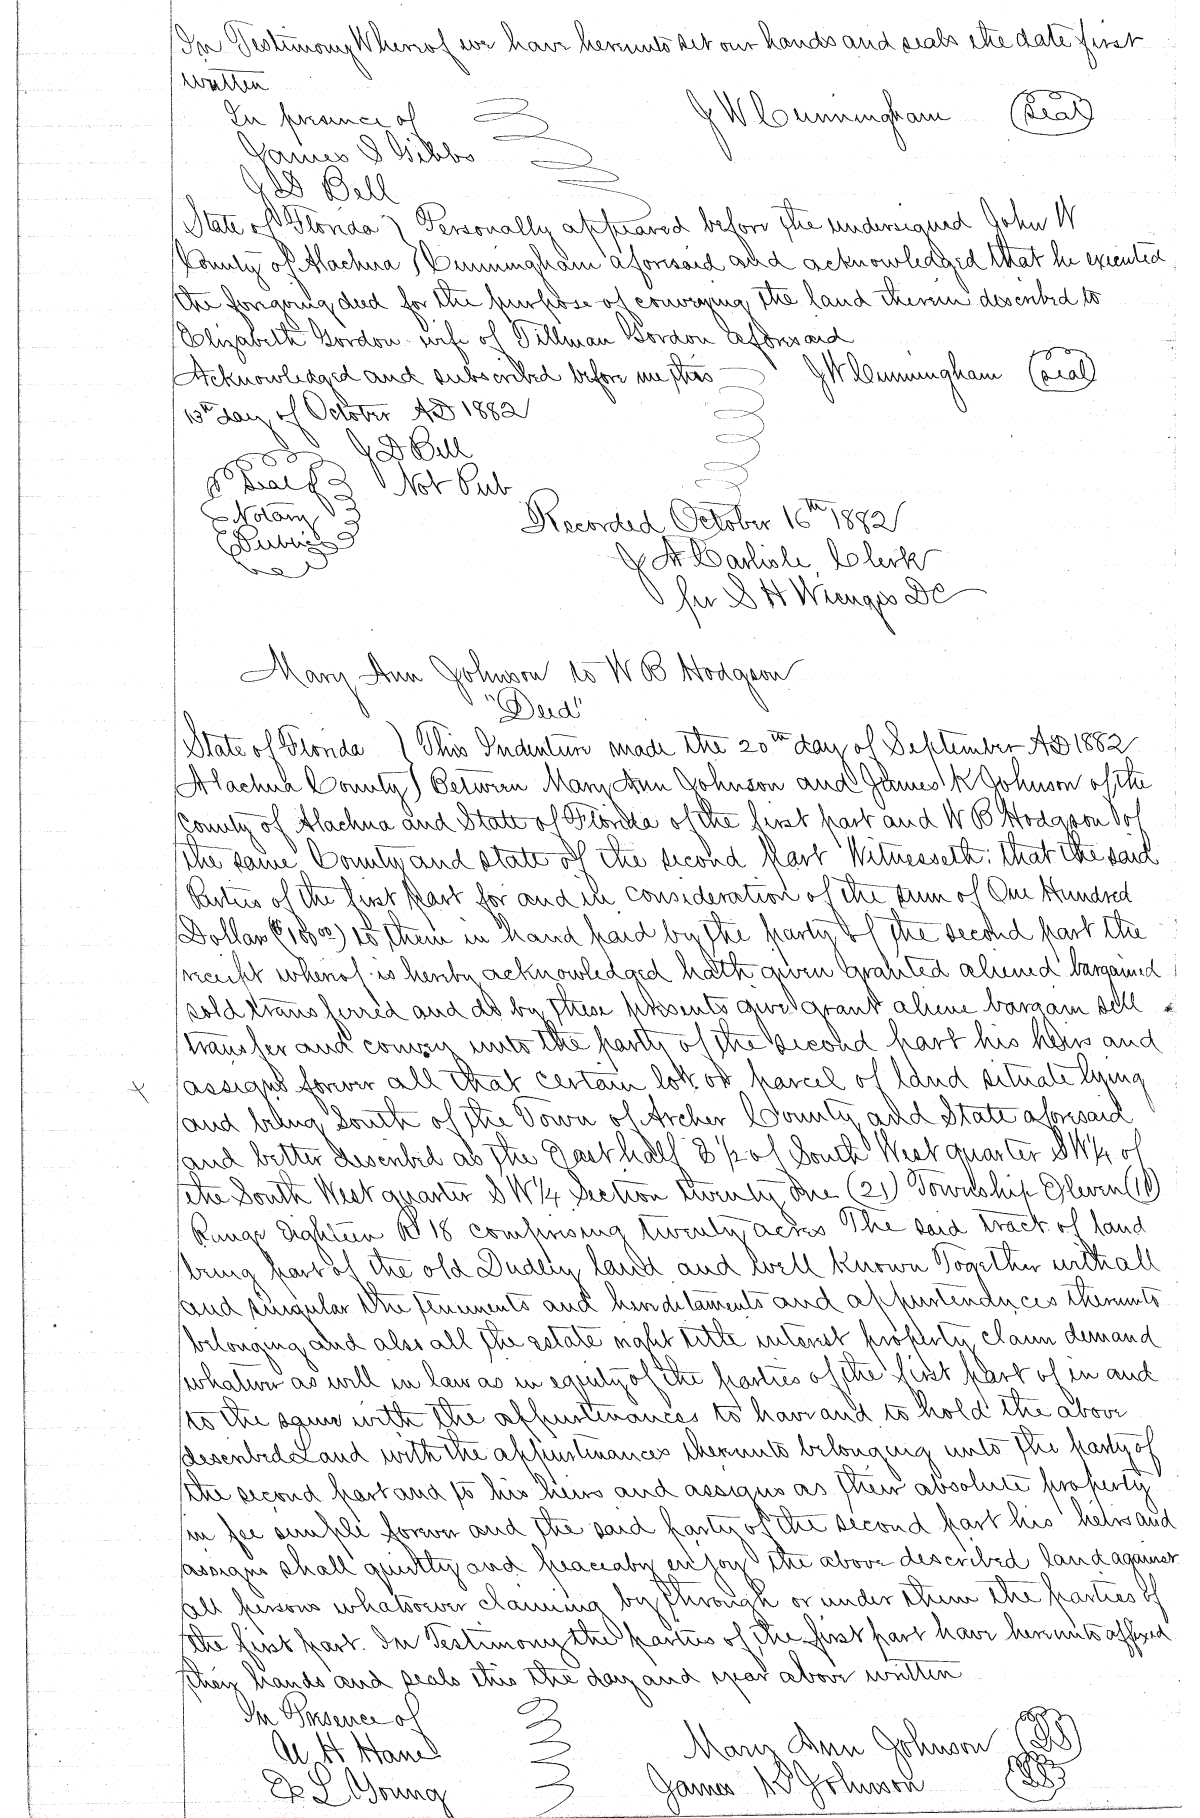 In Testimony Whereof we have hereunto set our hands and seals the date first
written
In presence of
J W Cunningham (Seal)
James S Gibbs
J D Bell
State of Florida ) Personally appeared before the undersigned John W
County of Alachua ) Cunningham aforesaid and acknowledged that he executed
the foregoing deed for the purpose of conveying the land therein described to
Elizabeth Gordon wife of Tillman Gordon aforesaid
Acknowledged and subscribed before me this J W Cunningham (Seal)
13th day of October AD 1882
J D Bell
Seal Not Pub
Notary
Public
Recorded October 16th 1882
J A Carlisle, Clerk
per S H Wienges DC
Mary Ann Johnson to W B Hodgson
"Deed"
State of Florida ) This Indenture made the 20th day of September AD 1882
Alachua County ) Between Mary Ann Johnson and James K Johnson of the
County of Alachua and State of Florida of the first part and W B Hodgson of
the same County and state of the second part Witnesseth: that the said
Parties of the first part for and in consideration of the sum of One Hundred
Dollars ($100 00) to them in hand paid by the party of the second part the
receipt whereof is hereby acknowledged hath given granted aliened bargained
sold transferred and do by these presents give grant aliene bargain sell
transfer and convey unto the party of the second part his heirs and
assigns forever all that certain lot or parcel of land situate lying
and being South of the Town of Archer County and State aforesaid
and better described as the East half E 1/2 of South West quarter SW 1/4 of
the South West quarter SW 1/4 Section twenty one (21) Township Eleven (11)
Range Eighteen R 18 comprising twenty acres The said tract of land
being part of the old Dudley land and well known Together with all
and singular the tenements and hereditaments and appurtenances thereunto
belonging and also all the estate right title interest property claim demand
whatever as well in law as in equity of the parties of the first part of in and
to the same with the appurtenances to have and to hold the above
described Land with the appurtenances thereunto belonging unto the party of
the second part and to his heirs and assigns as their absolute property
in fee simple forever and the said party of the second part his heirs and
assigns shall quietly and peaceaby enjoy the above described land against
all persons whatsoever claiming by through or under them the parties of
the first part. In Testimony the parties of the first part have hereunto affixed
their hands and seals this the day and year above written
In Presence of
Mary Ann Johnson
James K Johnson
L Young